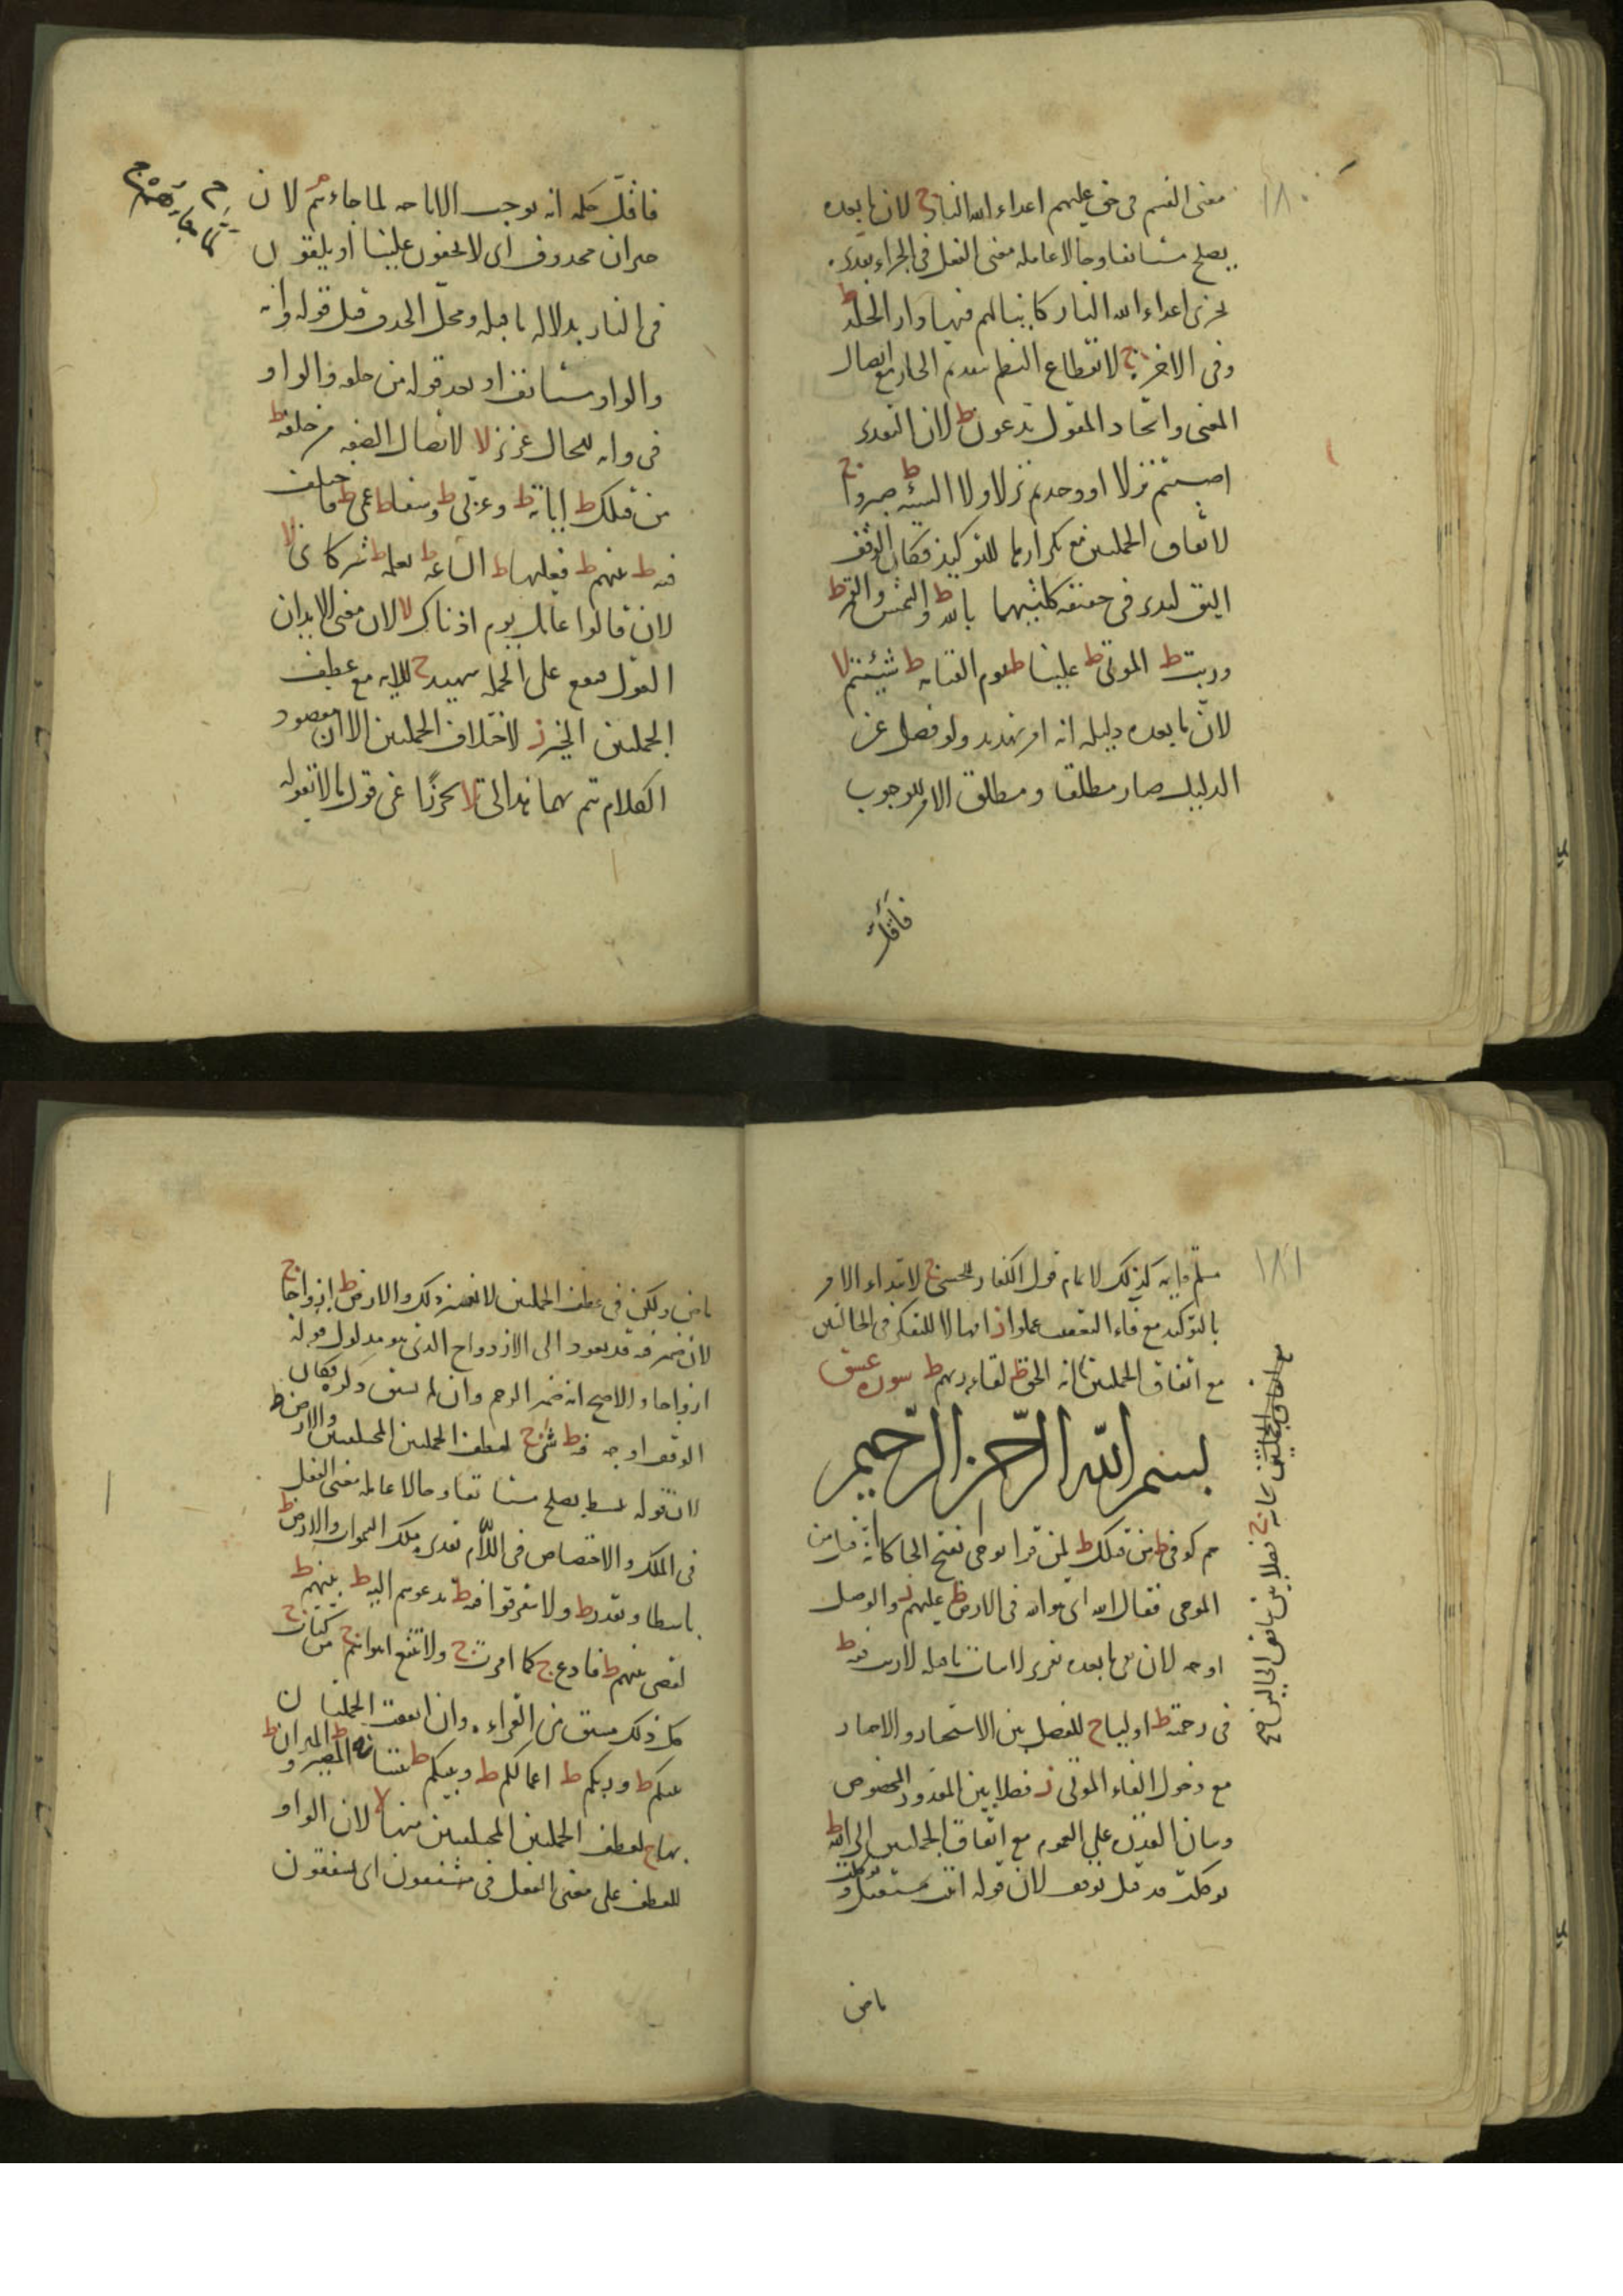 ١٨٠
معنى القسم فى حق عليهم اعداء الله النار ج لان ما بعده
يصلح مستانفا وحالا عامله معنى الفعل فى الجزاء تقديره
يجزى اعداء الله النار كائنا لهم فيها دار الخلد ط
وفى الاخرة ج لانقطاع النظم بتقديم الجار مع اتصال
المعنى واتحاد المقول تدعون ط لان التقدير
اصبتم نزلا او وجدتم نزلا ولا السيئة ط صبروا ج
لاتفاق الجملتين مع تكرارهما للتوكيد فكان الوقف
اليق ليدى فى حقيقة كلتيهما بالله ط والشمس والقمر ط
وربت ط الموتى ط علينا ط يوم القيامة ط شئتم لا
لان ما بعده دليله انه امر تهديد ولو فصل عن
الدليل صار مطلقا ومطلق الامر للوجوب
فاقل
فاقل حكمه انه يوجب الاباحه لما جاءهم ج لان
لما جاءهم ج
خبر ان محذوف اى لا يخفون علينا او يلقون
فى النار بدلالة ما قبله ومحل الحذف قبل قوله وانه
والواو مستانف او بعد قوله من خلفه والواو
فى وانه للحال عزيز لا لاتصال الصفة من خلفه ط
من قبلك ط اياته ط وعربى ط وشفاء ط عمى ط فاختلف
فيه ط بينهم ط فعليها ط الساعة ط بعلمه ط شركاءى لا
لان قالوا عامل يوم اذناك لا لان معنى الايذان
القول فيقع على الجملة شهيد ج للاية مع عطف
الجملتين الخير ز لاختلاف الجملتين الا ان مقصود
الكلام يتم بهما هذا لى لا تحرزا عن قول ما لا يقوله
١٨١
مسلم قايمة كذلك لا تمام قول الكفار للحسنى ج لابتداء الامر
بالتوكيد مع فاء التعقيب عملوا ز امهالا للتفكر فى الحالتين
مع اتفاق الجملتين بانه الحق ط لقاء ربهم ط سورة عسق
مع اتفاق الجملتين بجانبه ج فصلا بين تناقض الحالين صح
بسم الله الرحمن الرحيم
حم كوفى ط من قبلك ط لمن قرا يوحى بفتح الحا كانه قيل من
الموحى فقال الله اى هو الله فى الارض ط عليهم ز والوصل
اوجه لان نفى ما بعده تقرير لاثبات ما قبله لا ريب فيه ط
فى رحمته ط اولياء ج للفصل بين الاستخبار والاخبار
مع دخول الفاء الموتى ز فصلا بين المقدور المخصوص
وبيان القدرة على العموم مع اتفاق الجملتين الى الله ط
توكلت قد قيل يوقف لان قوله انيب مستقبل وتوكلت
ماض
ماض ولكن فى عطف الجملتين لا يعتبر ذلك والارض ط ازواجا ج
لان ضمير فيه قد يعود الى الازدواج الذى هو مدلول قوله
ازواجا والاصح انه ضمير الرحم وان لم يسبق ذكره فكان
الوقف اوجه فيه ط شئ ج لعطف الجملتين المختلفتين والارض ط
لان قوله يبسط يصلح مستانفا وحالا عامله معنى الفعل
فى الملك والاختصاص فى اللام تقديره ملك السموات والارض ط
باسطا ويقدر ط ولا تتفرقوا فيه ط تدعوهم اليه ط بينهم ط
لقضى بينهم ط فادع ج كما امرت ج ولا تتبع اهواءهم ج من كتاب ج
كل ذلك مسبق من القراء وان اتفقت الجملتان
بينكم ط وربكم ط اعمالكم ط وبينكم ط بيننا ط المصير ط والميزان ط
بها ج لعطف الجملتين المختلفتين منها لا لان الواو
للعطف على معنى الفعل فى مشفقون اى يشفقون